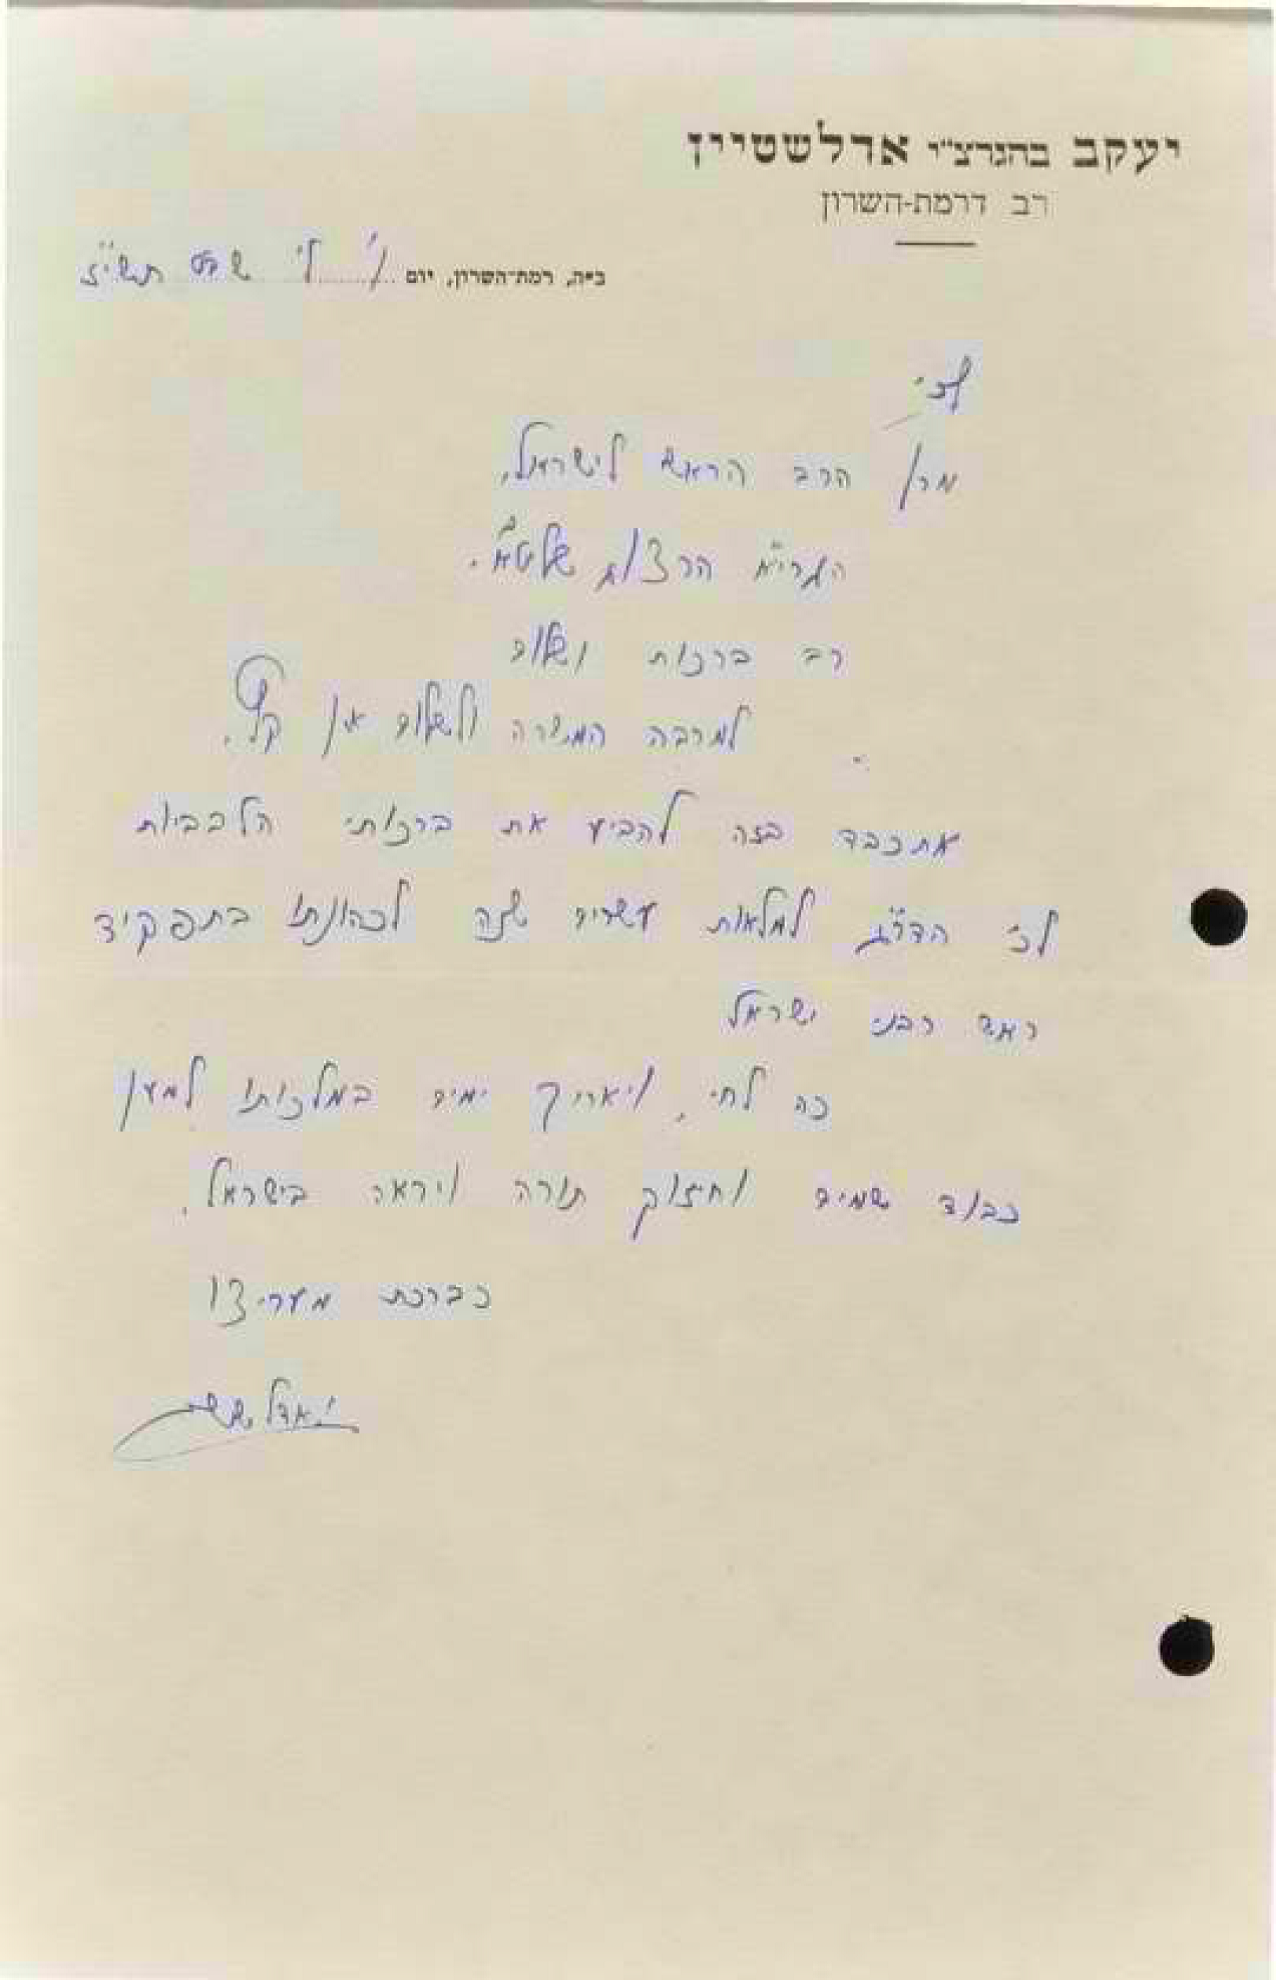 יעקב בהגרצ"י אדלשטיין
רב דרמת-השרון
ב"ה, רמת-השרון, יום ו' ל' שבט תשי"ז
לכ'
מרן הרב הראשי לישראל,
הגרי"א הרצוג שליט"א.
רב ברכות ושלום
למרבה המשרה ולשלום אין קץ.
אתכבד בזה להביע את ברכותי הלבביות
לכ' הדר"ג למלאות עשרים שנה לכהונתו בתפקיד
ראש רבני ישראל
כה לחי, ויאריך ימים במלכותו למען
כבוד שמים וחיזוק תורה ויראה בישראל.
כברכת מעריצו
י. אדלשטיין